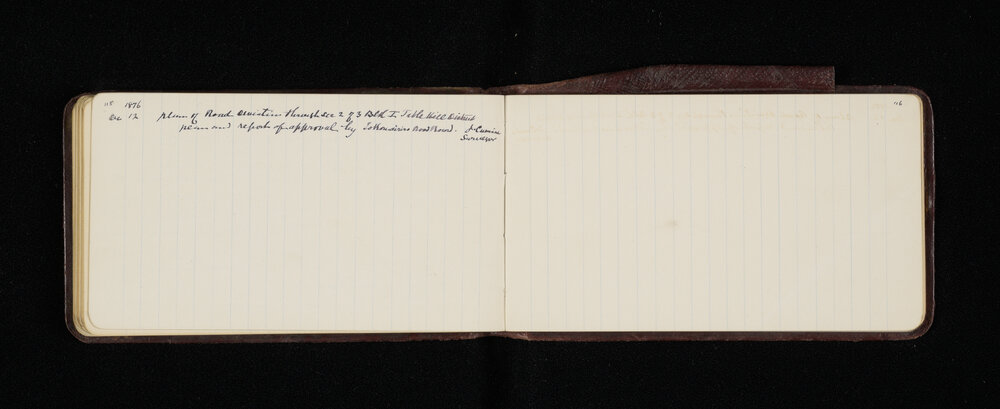 115 1876
Dec 12 plan of Road deviation through Sec 2 & 3 Blk I Table Hill District
plan and report of approval by Tokomairiro Road Board. J Cumine
Surveyor
116